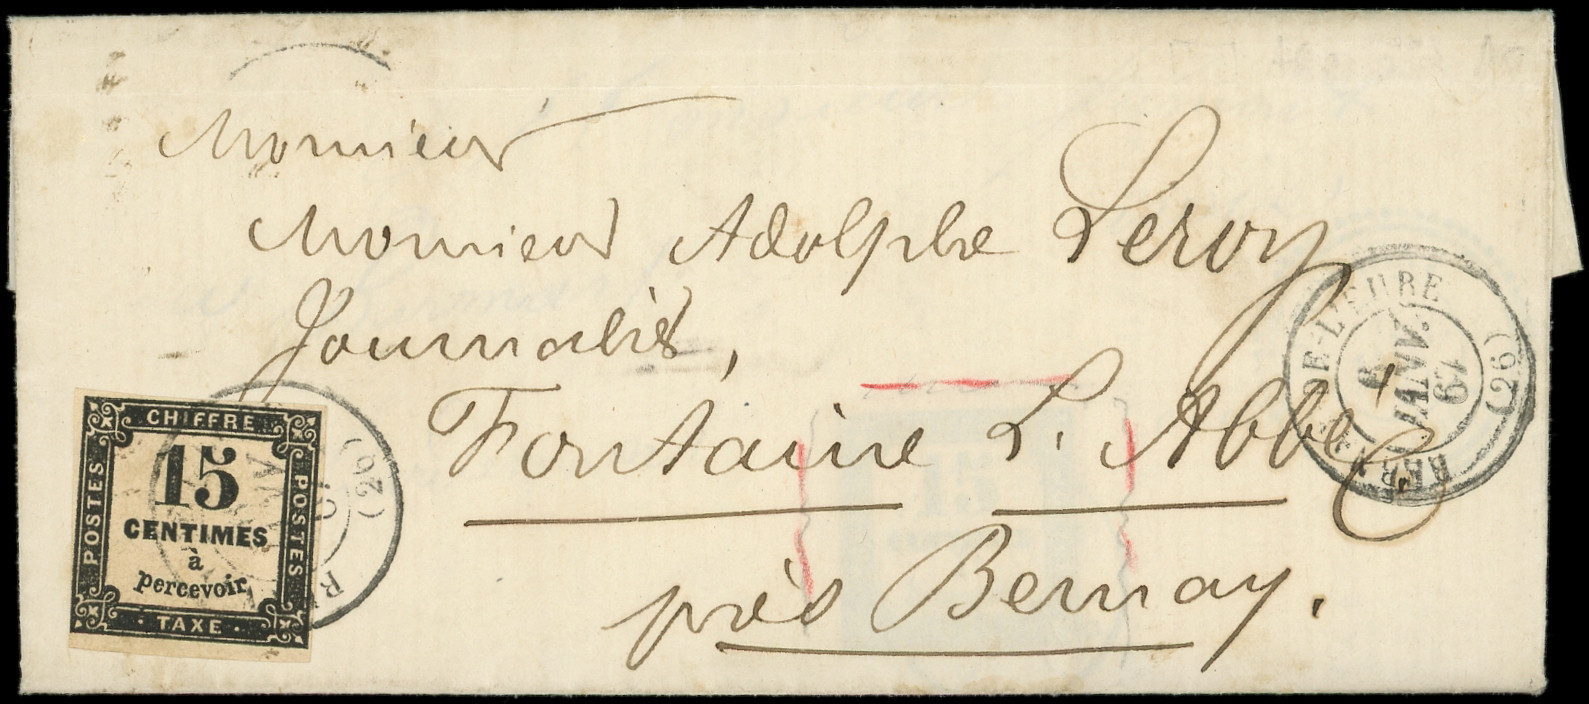 Monsieur
Monsieur Adolphe Leroy
Journalier,
Fontaine L'Abbé
près Bernay.
CHIFFRE
POSTES
15
CENTIMES
à
percevoir
POSTES
· TAXE ·
(26)
(26)
6
JANV.
67